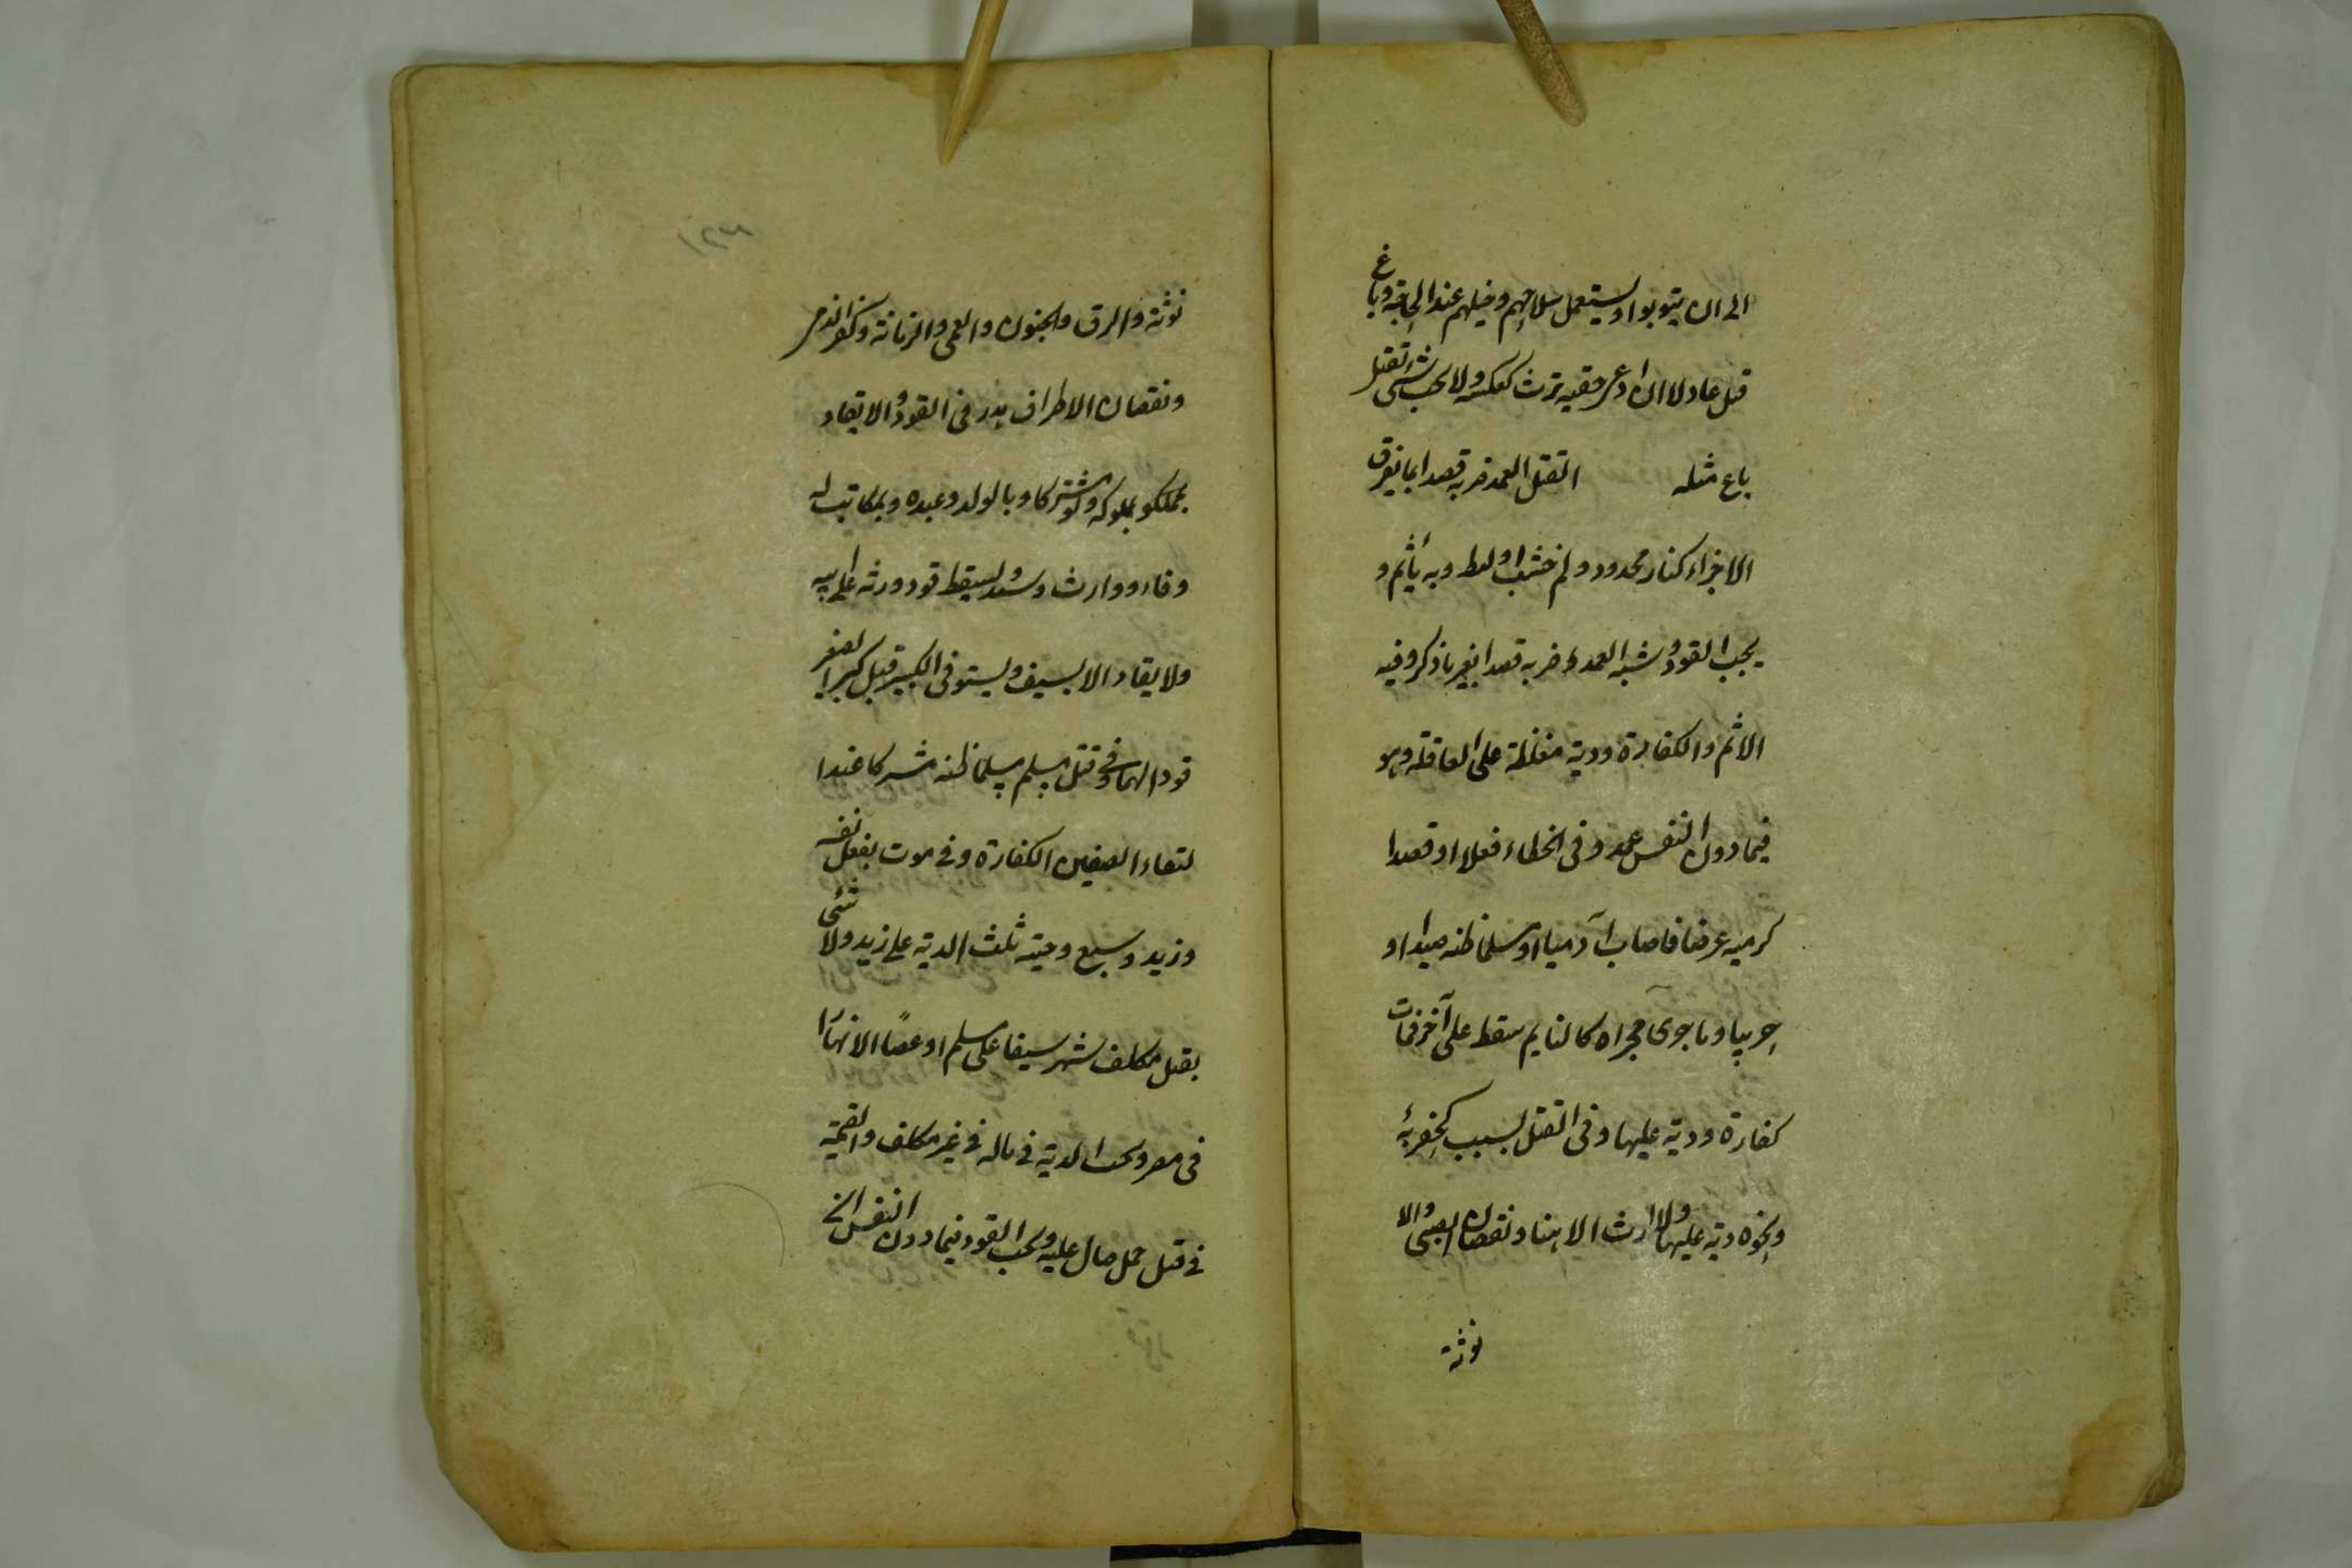 الى ان يتوبوا ويستعمل سلاحهم وخيلهم عند الحاجة وباغ
قتل عادلا ان ادعى حقيه يرث كعكسه ولا يجب شئ بقتل
باغ مثله القتل العمد ضربه قصدا بما يفرق
الاجزاء كنار ومحدد ولو خشب او ليط وبه يأثم و
يجب القود وشبه العمد ضربه قصدا بغير ما ذكر وفيه
الاثم والكفارة ودية مغلظة على العاقلة وهو
فيما دون النفس عمد وفى الخطاء فعلا او قصدا
كرميه غرضا فاصاب آدميا او مسلما ظنه صيدا او
حربيا وما جرى مجراه كالنايم سقط على آخر فمات
كفارة ودية عليها وفى القتل بسبب كحفر بئر
ونحوه دية عليها ولا ارث الا هنا ونقصان الصبى والا
نوثة
١٤٣
نوثة والرق والجنون والعمى والزمانة وكفر الذمى
ونقصان الاطراف يهدر فى القود والا يقاد
بمملوكه ولو مشتركا وبالولد وعبده وبمكاتب له
وفاء ووارث وسيد ويسقط قود ورثه على ابيه
ولا يقاد الا بسيف ويستوفى الكبير قبل كبر الصغير
قودا لهما وفى قتل مسلم مسلما ظنه مشركا عند ا
لتقاء الصفين الكفارة وفى موت بفعل نفسه
وزيد وسبع وحية ثلث الدية على زيد ولا شئ
بقتل مكلف شهر سيفا على مسلم او عصًا الا نهارًا
فى مصر وتجب الدية فى ماله فى غير مكلف والقيمة
فى قتل جمل صال عليه ويجب القود فيما دون النفس ان